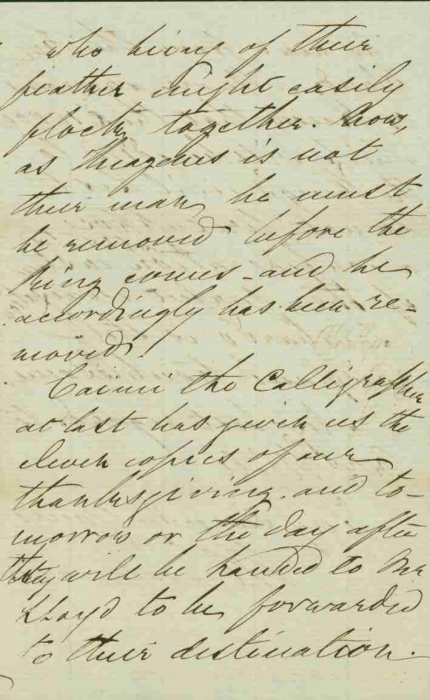 who being of their
feather might easily
flock together. Now,
as Theagenis is not
their man, he must
be removed before the
King comes - and he
accordingly has been re-
moved.
Caimi the Calligrapher
at last has given us the
eleven copies of our
thanksgiving. and to-
morrow or the day after
they will be handed to Mr
Lloyd to be forwarded
to their destination.